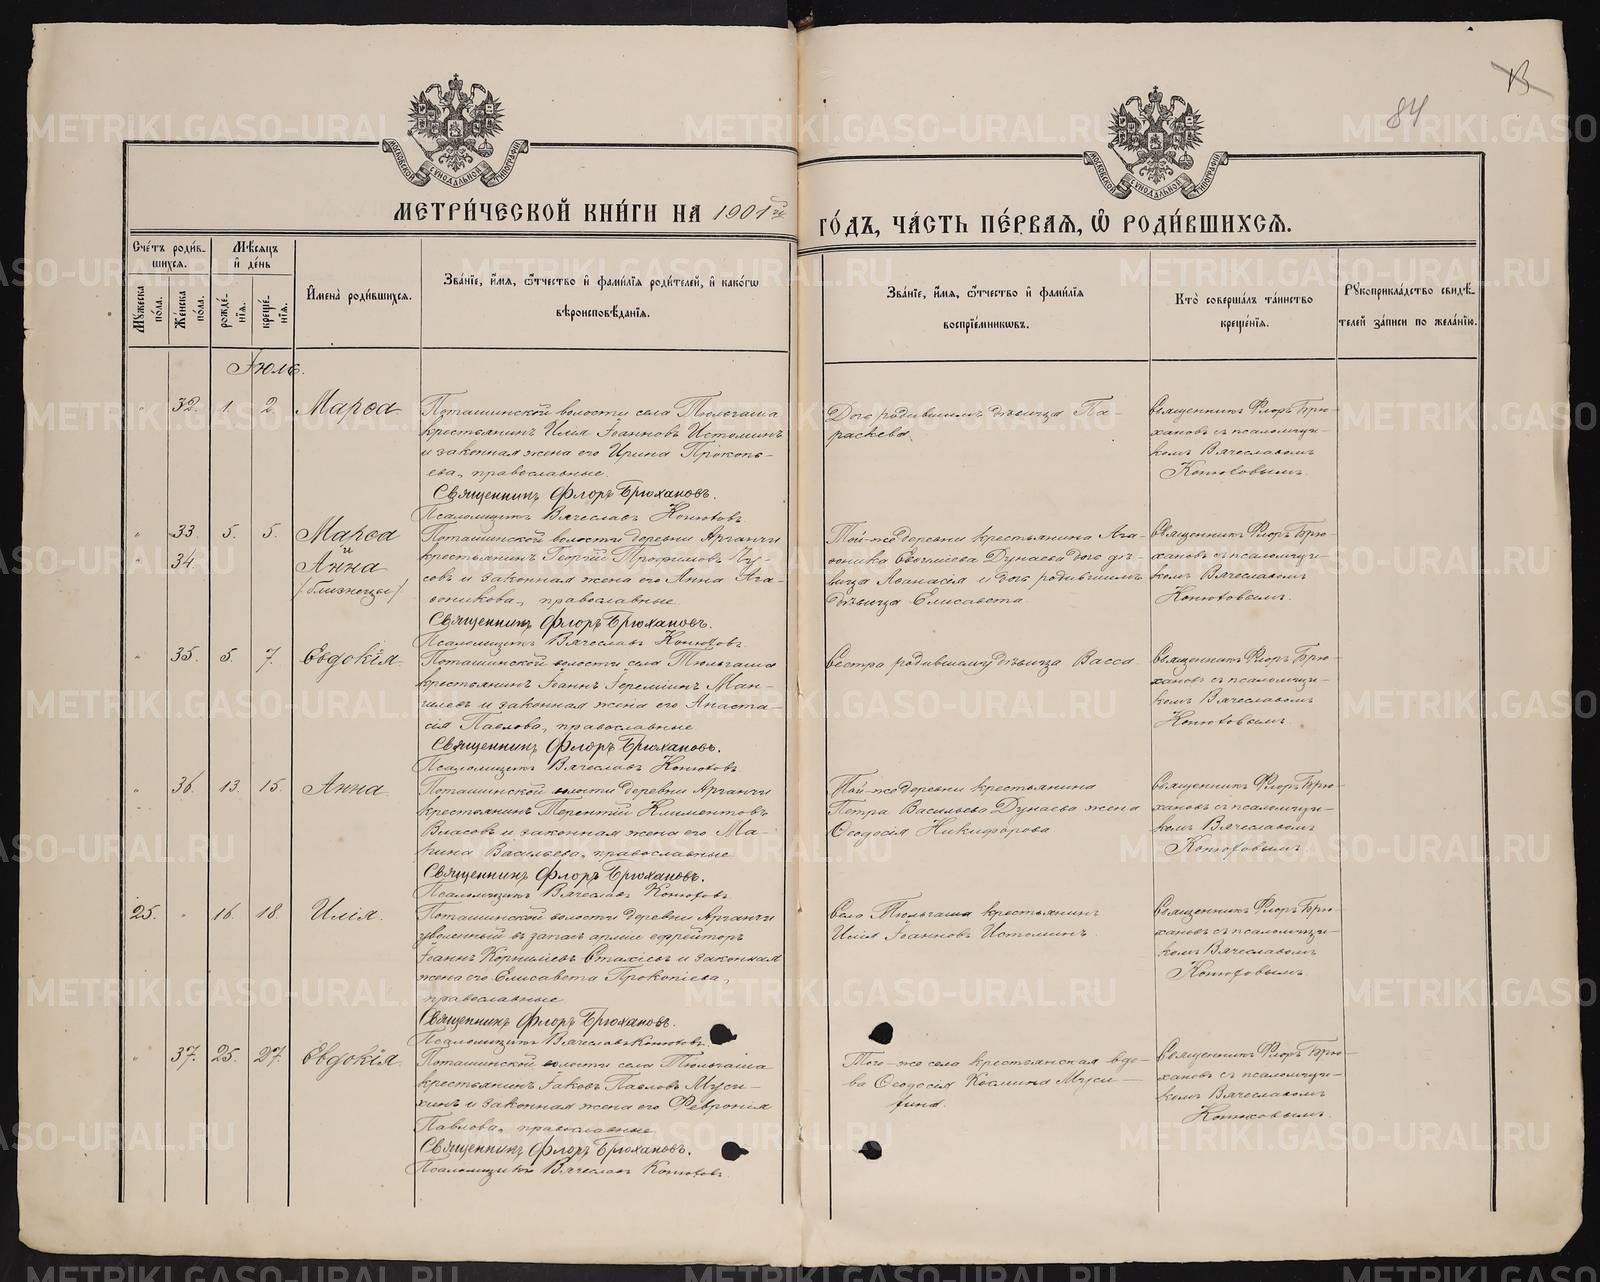 84
13
МОСКОВСКОЙ СѴНОДАЛЬНОЙ ТИПОГРАФІИ
МОСКОВСКОЙ СѴНОДАЛЬНОЙ ТИПОГРАФІИ
МЕТРИ́ЧЕСКОЙ КНИ́ГИ НА 1901й
ГО́ДЪ, ЧА́СТЬ ПЕ́РВАѦ, Ѽ РОДИ́ВШИХСѦ.
Сче́тъ роди́в-
шихсѧ.
Мѣ́сѧцъ
и҆ де́нь
Мꙋ́жеска
по́ла.
Же́нска
по́ла.
рожде́-
нїѧ.
креще́-
нїѧ.
И҆мена̀ роди́вшихсѧ.
Зва́нїе, и҆́мѧ, ѻ҆́тчество и҆ фами́лїѧ роди́телей, и҆ како́гѡ
вѣроисповѣ́данїѧ.
Зва́нїе, и҆́мѧ, ѻ҆́тчество и҆ фами́лїѧ
воспрїе́мникѡвъ.
Кто̀ соверша́лъ та́инство
креще́нїѧ.
Рꙋкоприкла́дство свидѣ́-
телей за́писи по жела́нїю.
Іюль.
" 32. 1. 2. Марѳа
Поташинской волости села Тюльгаша
крестьянинъ Илія Іоанновъ Истоминъ
и законная жена его Ирина Прокопь-
ева, православные.
Священникъ Флоръ Брюхановъ.
Псаломщикъ Вячеславъ Конюховъ
Дочь родившимъ дѣвица Па-
раскева.
Священникъ Флоръ Брю-
хановъ съ псаломщи-
комъ Вячеславомъ
Конюховымъ.
" 33. 5. 5. Марѳа
и
" 34. Анна
/близнецы/
Поташинской волости деревни Арганчи
крестьянинъ Георгій Трофимовъ
и законная жена его Анна Ага-
ѳоникова, православные.
Священникъ Флоръ Брюхановъ.
Псаломщикъ Вячеславъ Конюховъ.
Той-же деревни крестьянина Ага-
ѳоника Дунаева дочь дѣ-
вица Аѳанасія и дочь родившимъ
дѣвица Елисавета
Священникъ Флоръ Брю-
хановъ съ псаломщи-
комъ Вячеславомъ
Конюховымъ.
" 35. 5. 7. Евдокія.
Поташинской волости села Тюльгаша
крестьянинъ Іоаннъ Іереміинъ
и законная жена его Анаста-
сія Павлова, православные
Священникъ Флоръ Брюхановъ.
Псаломщикъ Вячеславъ Конюховъ
Сестра родившему дѣвица Васса
Священникъ Флоръ Брю-
хановъ съ псаломщи-
комъ Вячеславомъ
Конюховымъ.
" 36. 13. 15. Анна
Поташинской волости деревни Арганчи
крестьянинъ Терентій Климентовъ
Власовъ и законная жена его Ма-
рина Васильева, православные
Священникъ Флоръ Брюхановъ.
Псаломщикъ Вячеславъ Конюховъ
Той-же деревни крестьянина
Петра Васильева Дунаева жена
Ѳеодосія Никифорова
Священникъ Флоръ Брю-
хановъ съ псаломщи-
комъ Вячеславомъ
Конюховымъ
25. " 16. 18. Илія.
Поташинской волости деревни Арганчи
уволенный въ запасъ арміи ефрейторъ
Іоаннъ Корниліевъ Стахіевъ и законная
жена его Елисавета Прокопіева,
православные
Священникъ Флоръ Брюхановъ.
Псаломщикъ Вячеславъ Конюховъ.
Села Тюльгаша крестьянинъ
Илія Іоанновъ Истоминъ.
Священникъ Флоръ Брю-
хановъ съ псаломщи-
комъ Вячеславомъ
Конюховымъ
" 37. 25. 27. Евдокія.
Поташинской волости села Тюльгаша
крестьянинъ Іаковъ Павловъ Муси-
хинъ и законная жена его Февронія
Павлова, православные
Священникъ Флоръ Брюхановъ.
Псаломщикъ Вячеславъ Конюховъ.
Того-же села крестьянская вдо-
ва Ѳеодосія Косьмина Муси-
хина.
Священникъ Флоръ Брю-
хановъ съ псаломщи-
комъ Вячеславомъ
Конюховымъ.
METRIKI.GASO-URAL.RU